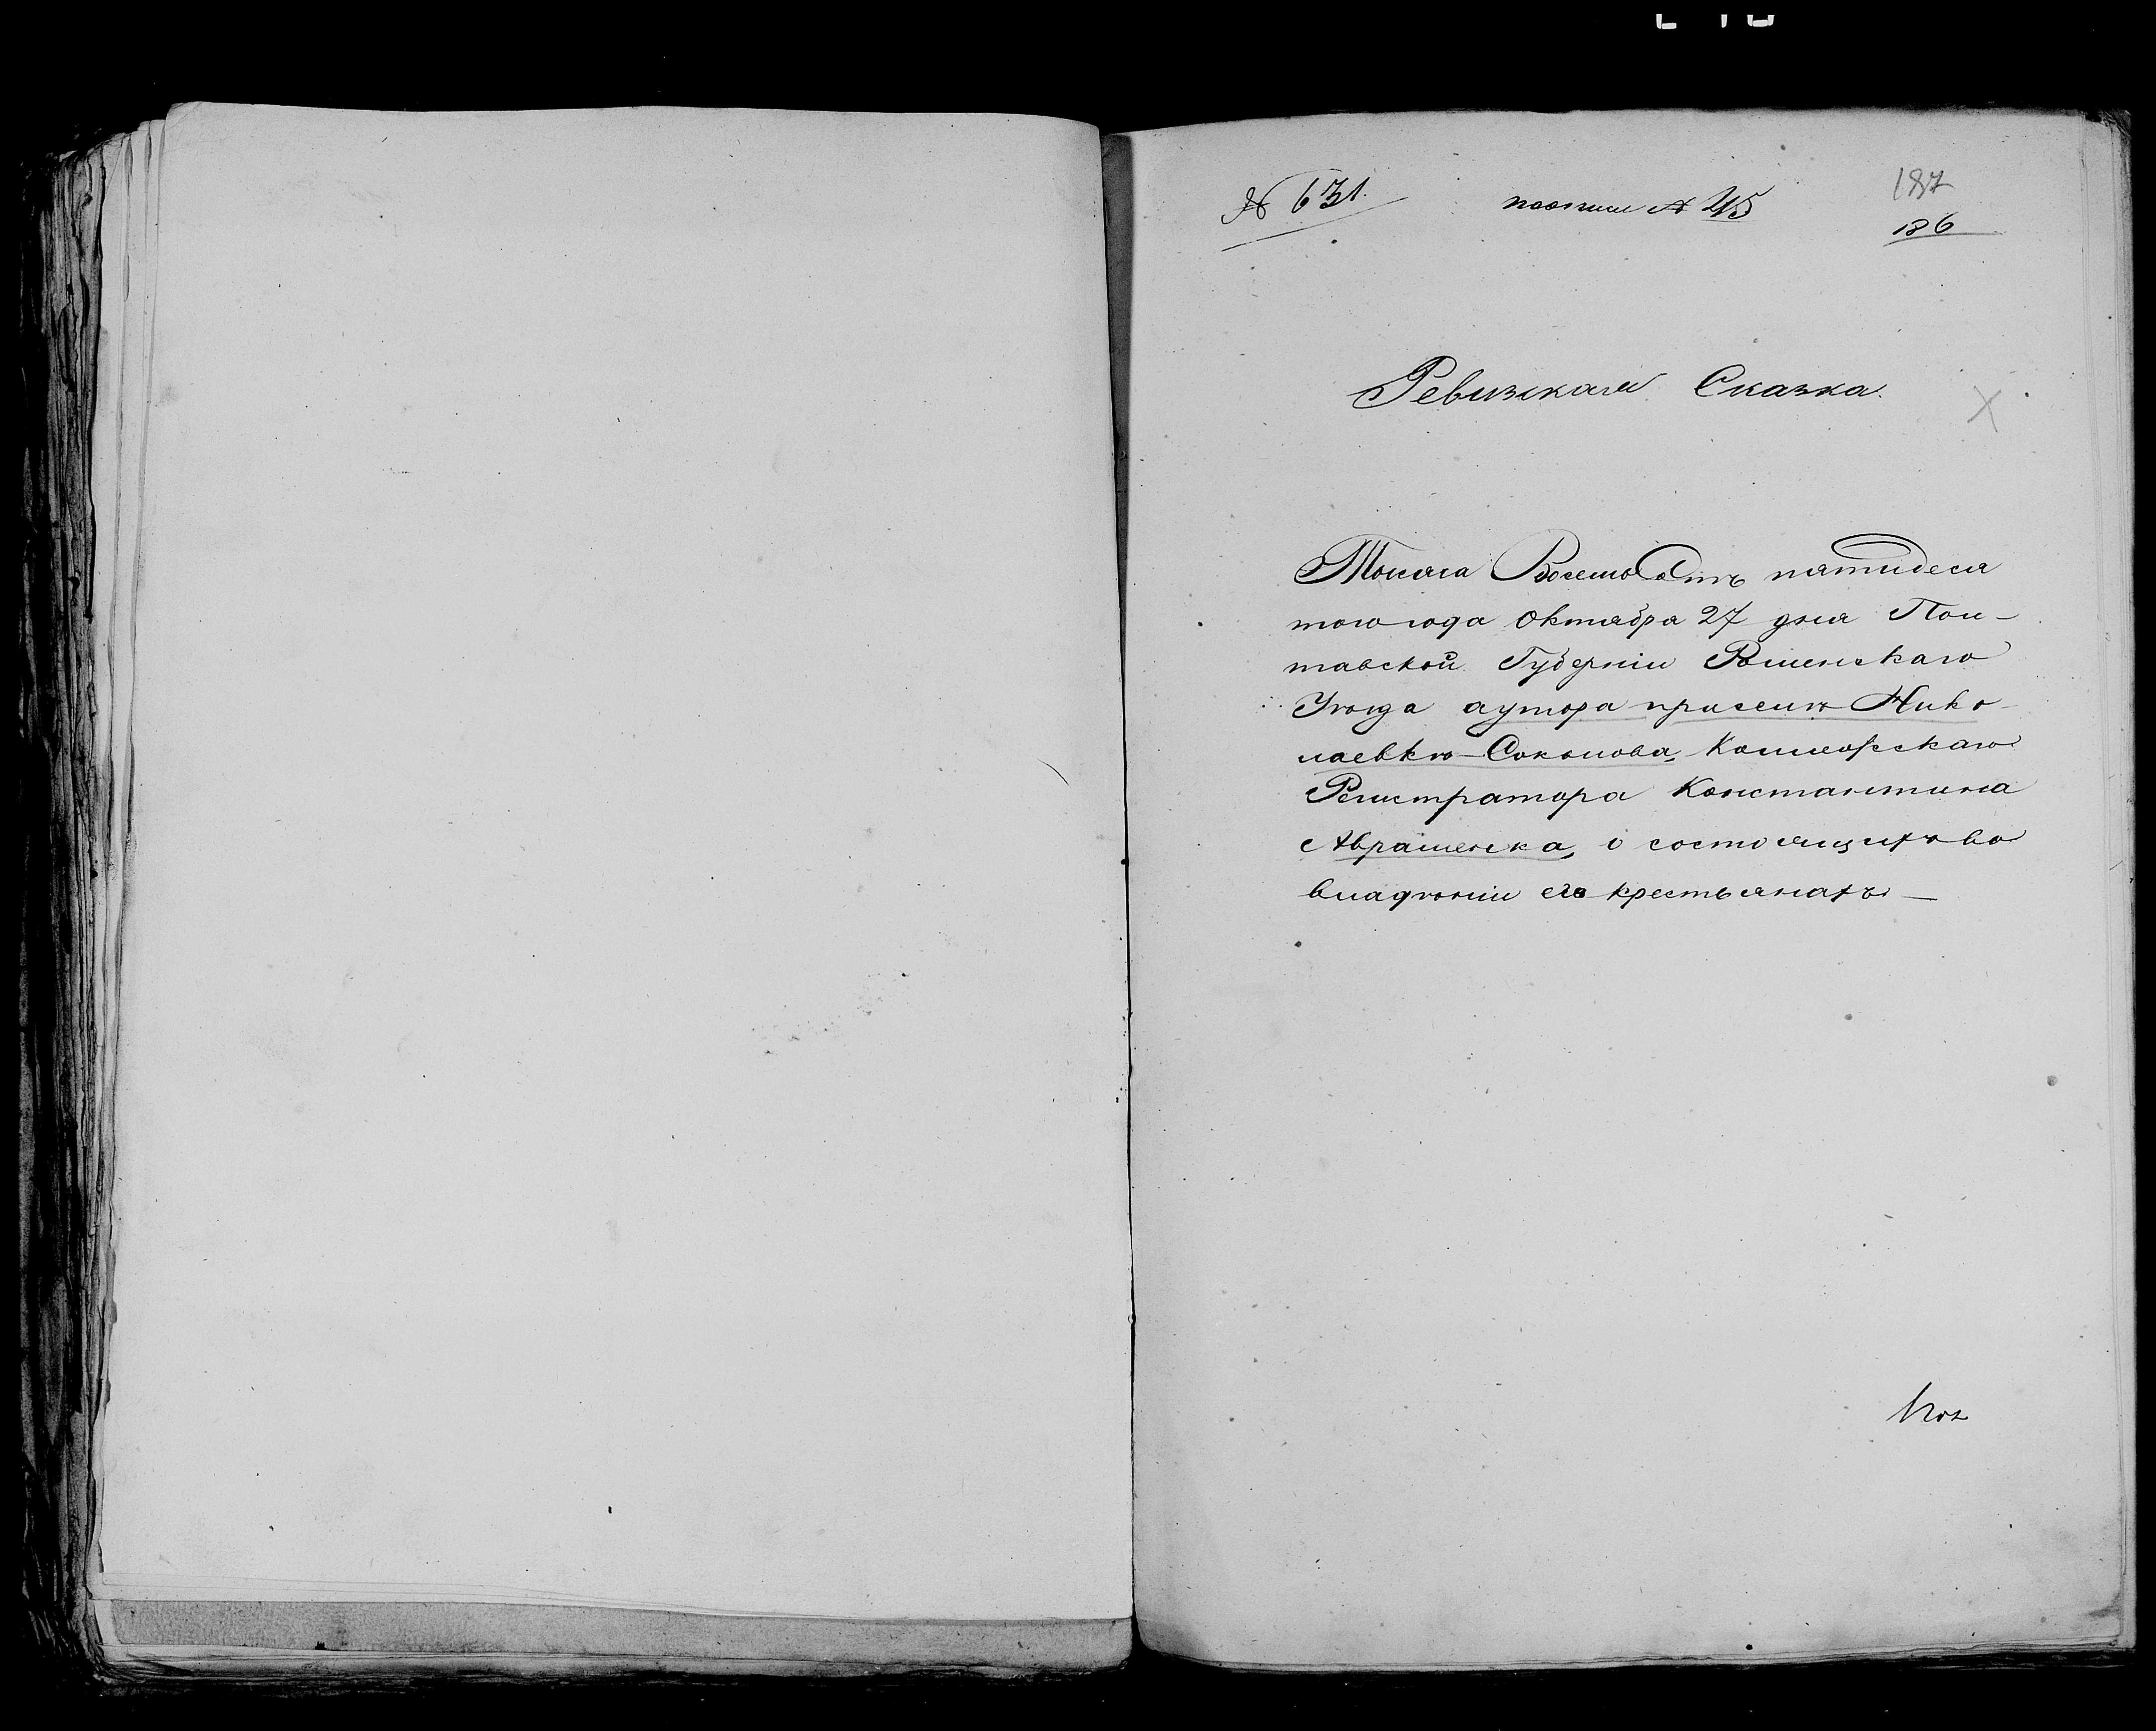 № 631.
№ 45
187
186
Ревизская Сказка.
Тысяча Восемь Сотъ пятидеся
того года Октября 27 дня Пол-
тавской Губерніи Роменскаго
Уѣзда хутора при селѣ Нико-
лаевкѣ Соколова, Коллежскаго
Регистратора Константина
Авраменка, о состоящихъ во
владѣніи его крестьянахъ —